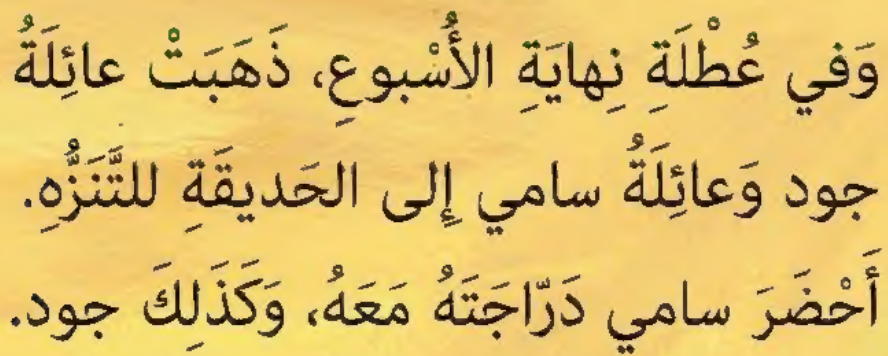 وَفي عُطْلَةِ نِهايَةِ الأُسْبوعِ، ذَهَبَتْ عائِلَةُ
جود وَعائِلَةُ سامي إِلى الحَديقَةِ للتَّنَزُّهِ.
أَحْضَرَ سامي دَرّاجَتَهُ مَعَهُ، وَكَذَلِكَ جود.